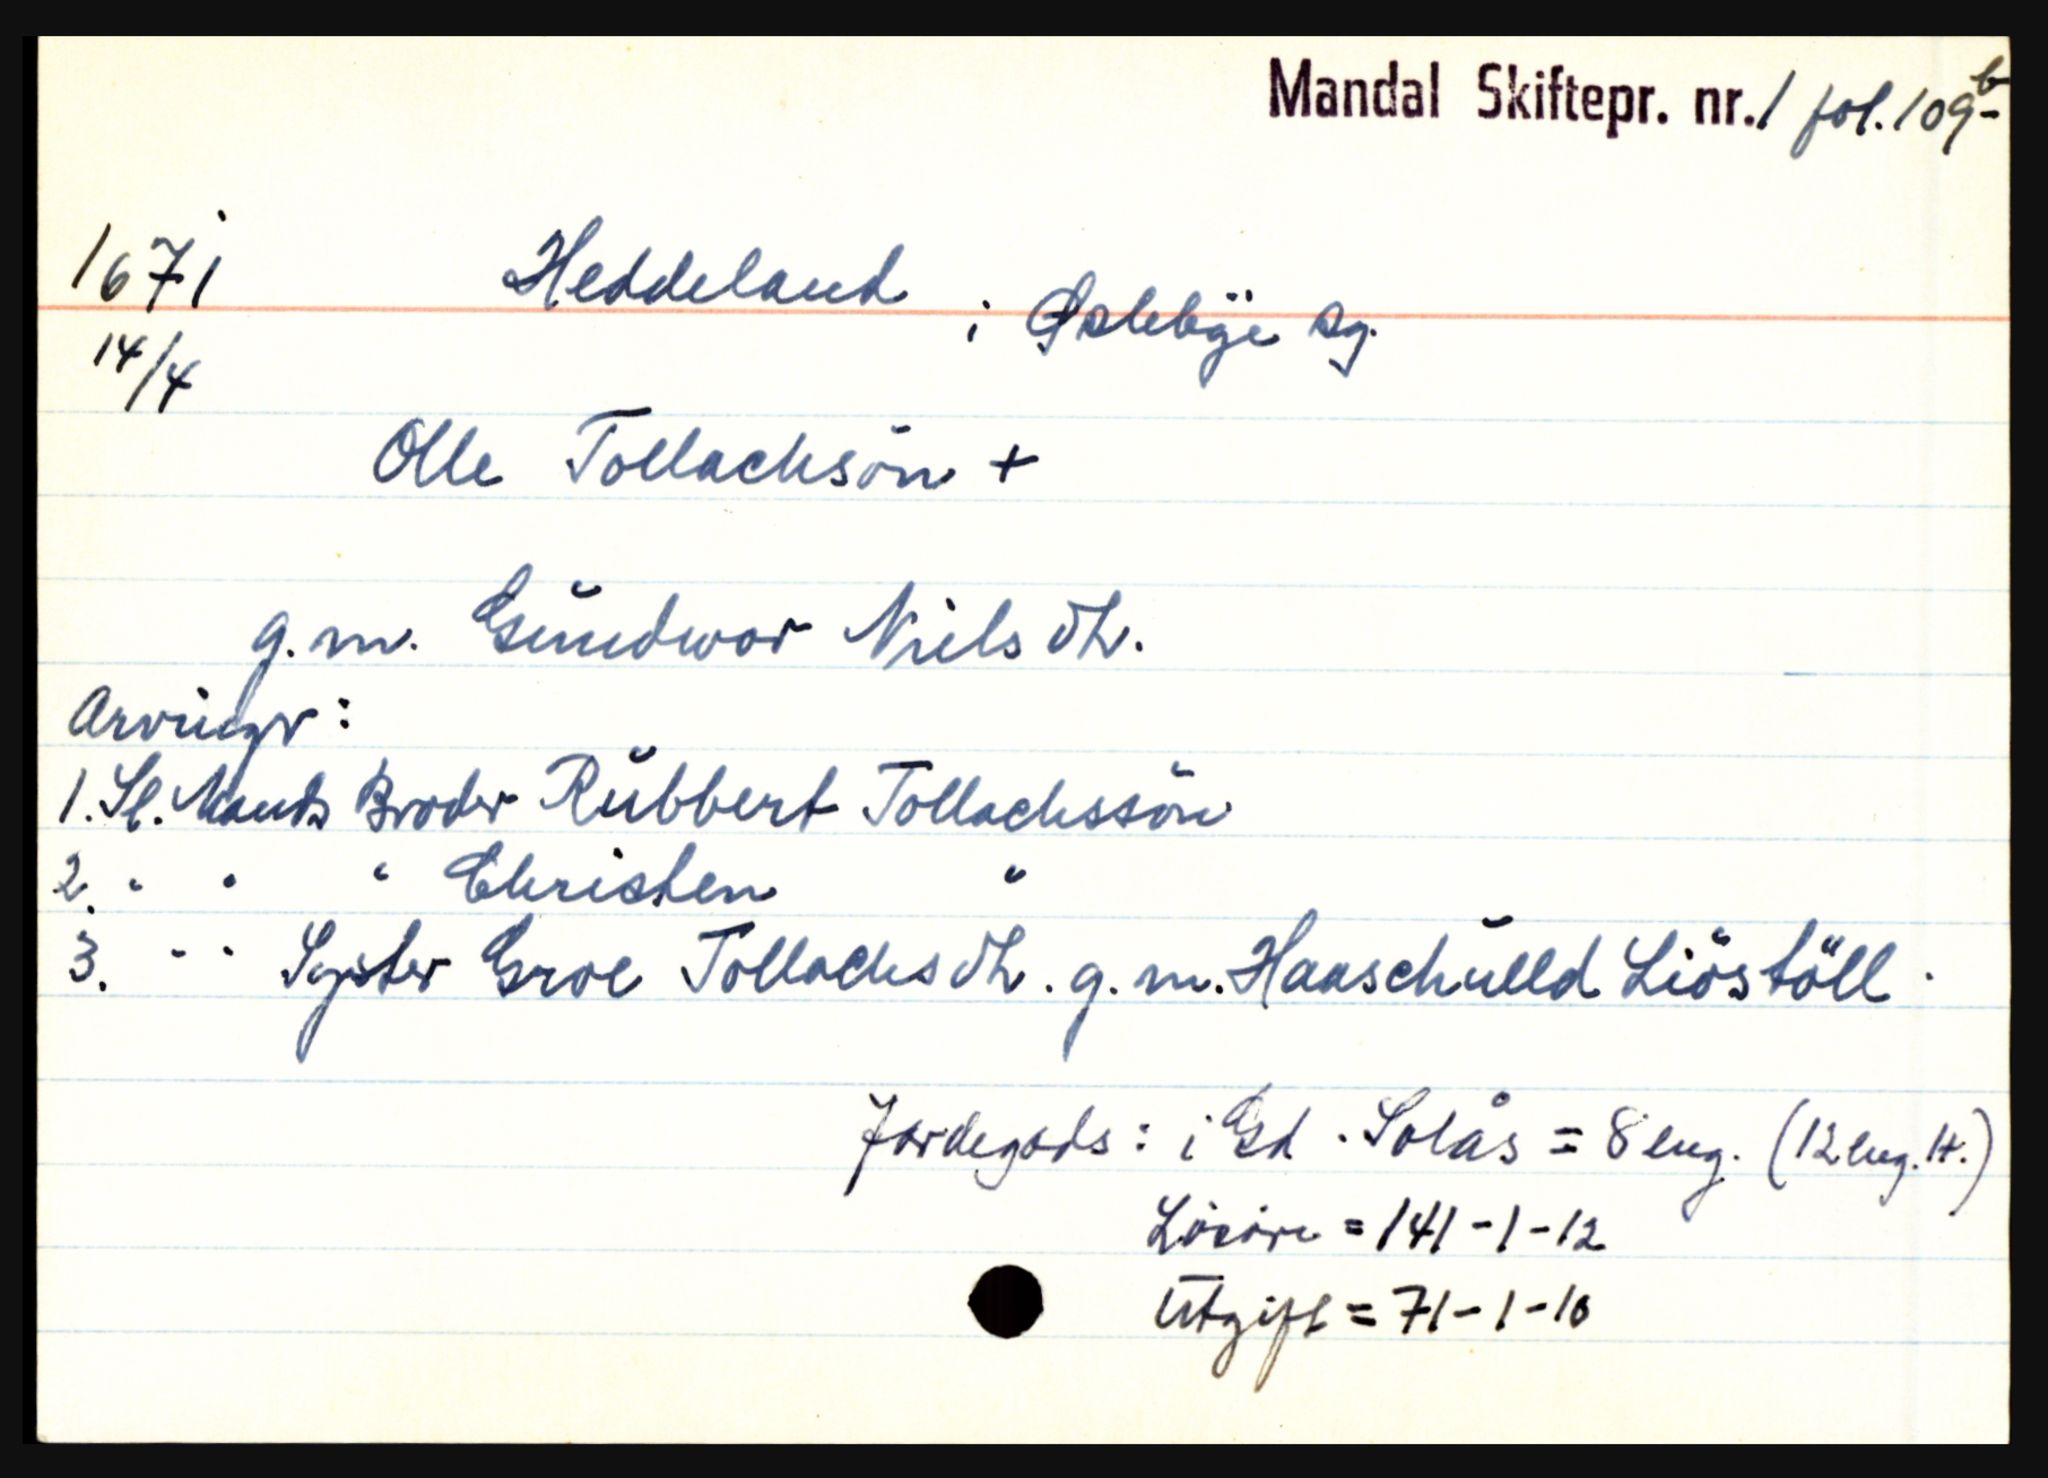 Mandal Skiftepr. nr. 1 fol. 109b-
1671 Heddeland i Øslebÿe sg.
14/4
Olle Tollachsön +
g. m. Gŭndwor Niels dtr.
Arvinger:
1. Sl. Mands Broder Rŭbbert Tollachssön
2. " " " Christen "
3. " " Syster Groe Tollachs dtr. g. m. Haaschŭlld Liöstöll.
Jordegods: i Gd. Solås = 8 eng. (12 eng. lt.)
Lösöre = 141-1-12
Utgift = 71-1-10